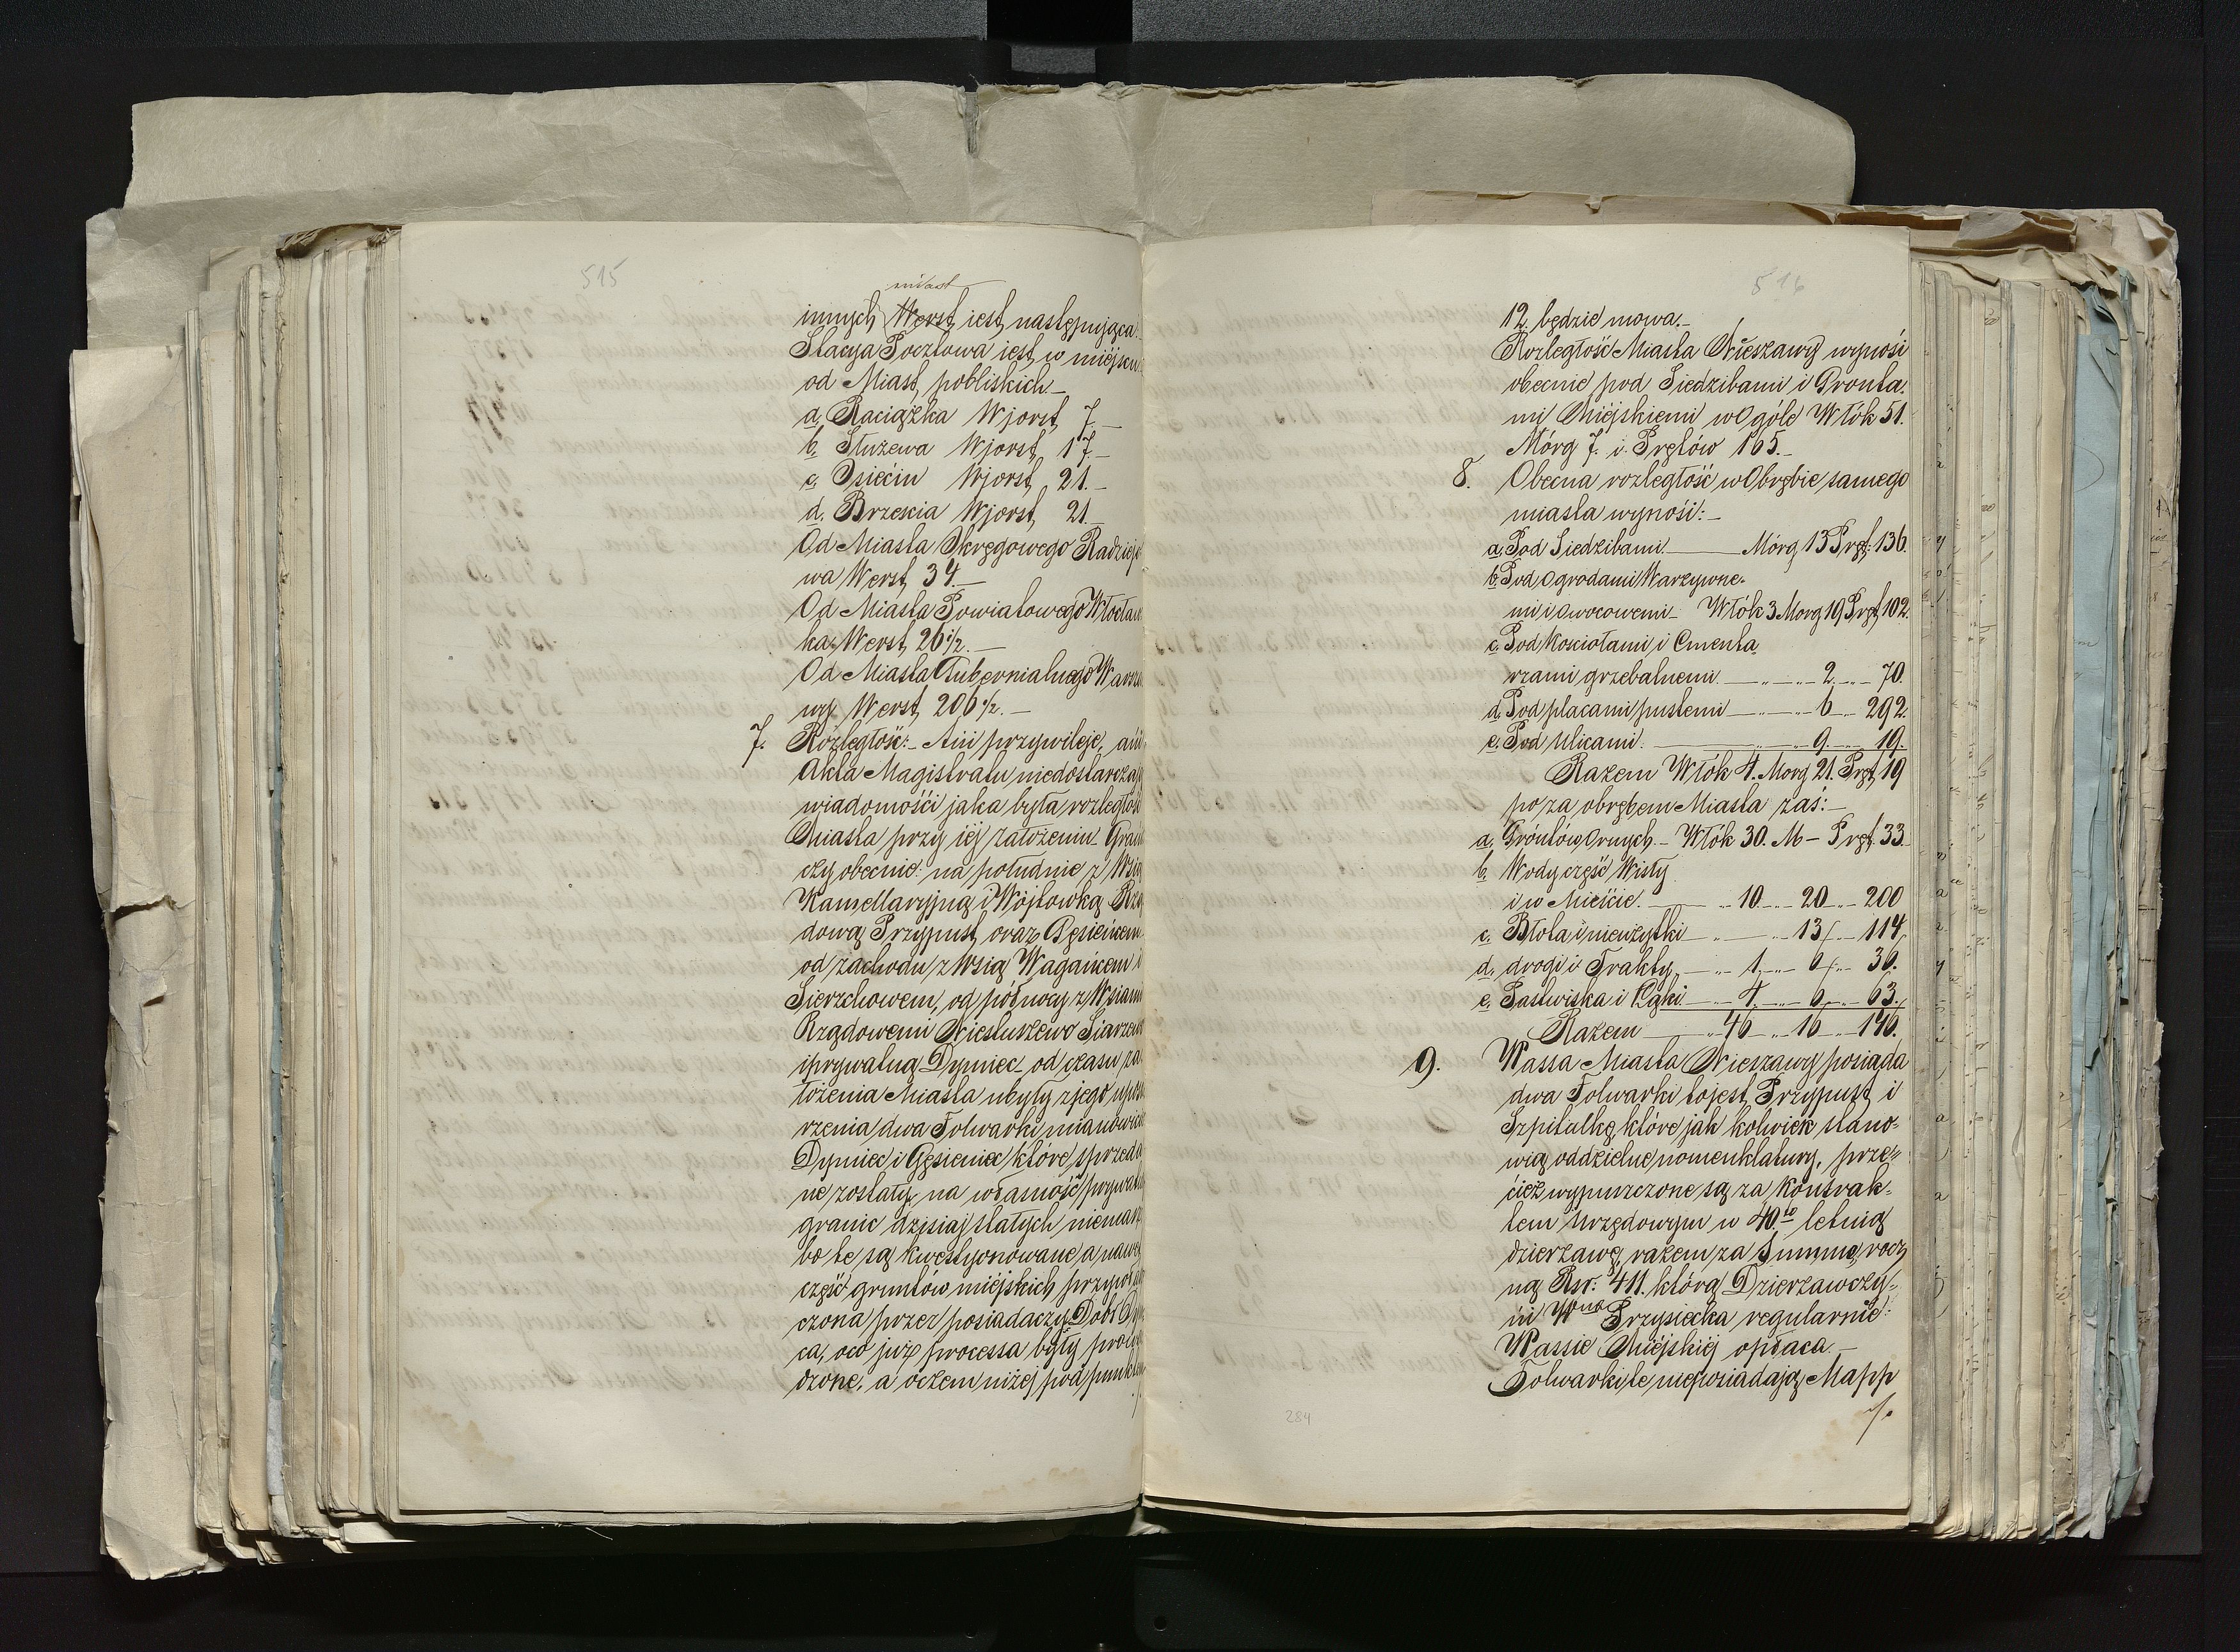 515
miast
innych Werst iest następująca:
Stacya Pocztowa iest w miéjscu
od Miast pobliskich.—
a, Raciążka Wjorst 7.—
b, Służewa Wjorst 17.—
c, Osięcin Wjorst 21.—
d. Brzescia Wjorst 21.—
Od Miasta Okręgowego Radziejo
wa Werst 34.—
Od Miasta Powiatowego Włocław
ka Werst 26 1/2.—
Od Miasta Gubernialnego Warsza
wy Werst 206 1/2.—
7. Rozległość:— Ani przywileje, ani
Akta Magistratu niedostarczają
wiadomości jaka była rozległość
Miasta przy iéj założeniu Grani
czy obecnie: na południe z Wsią
Kamellaryjną i Wójtowką Rzą
dową Przypust oraz Gęsieńcem
od zachodu z Wsią Wagańcem i
Sierzchowem, od północy z Wsiami
Rządowemi Niestuszewo Siarzewo
i prywatną Dyniec od czasu za
łożenia Miasta ubyły z jego uposa
rzenia dwa Folwarki mianowicie
Dyniec i Gęsieniec które sprzeda
ne zostały na własność prywatną
granic dzisiaj stałych niemasz
bo te są kwestyonowane a nawet
część gruntów miéjskich przywła
czona przez posiadaczy Dóbr
ca, oco już processa były prowa
dzone, a oczem niżej pod punktem
516
12. będzie mowa.—
Rozległość Miasta Nieszawy wynosi
obecnie pod Siedzibami i Gronta.
mi Miéjskiemi w Ogóle Włók 51.
Mórg 7. i Prętów 165.—
8. Obecna rozległość w Obrębie samego
miasta wynosi:—
a, Pod Siedzibami — Mórg 13 Pręt: 136.
b, Pod Ogrodami Warzywne-
mi i owocowemi — Włók 3 Morg 19 Pręt 102.
c, Pod Kosciołami i Cmenta
rzami grzebalnemi — " — 2 — " — 70.
d, Pod placami pustemi — " — 6 — 292.
e, Pod Ulicami. — " — 9. — " — 19.
Razem Włók 4. Morg 21. Pręt 19
po za obrębem Miasta zaś:—
a, Gróntów Ornych.— Włók 30. M — Pręt 33.
b, Wody część Wisły
i w Mieście. — " 10 — 20 — " — 200
c. Błota i nieużytki — " — " 13 — 114.
d. drogi i Trakty — " 1 — " — 6 — " — 36.
e. Pastwiska i Łąki — " 4 — " — 6 — " — 63.
Razem — " 46 — " 16 — " 146.
9. Kassa Miasta Nieszawy posiada
dwa Folwarki tojest Przypust i
Szpitalkę które jak kolwiek stano-
wią oddzielne nomenklatury, prze-
cież wypuszczone są za Kontrak-
tem Urzędowym w 40to letnią
dzierzawę, razem za Summę rocz
ną Rsr: 411. którą Dzierzawczy-
ni Wna Przysiecka regularnie
Kassie Miéjskiéj opłaca.—
Folwarki te nieposiadają Mapp
284